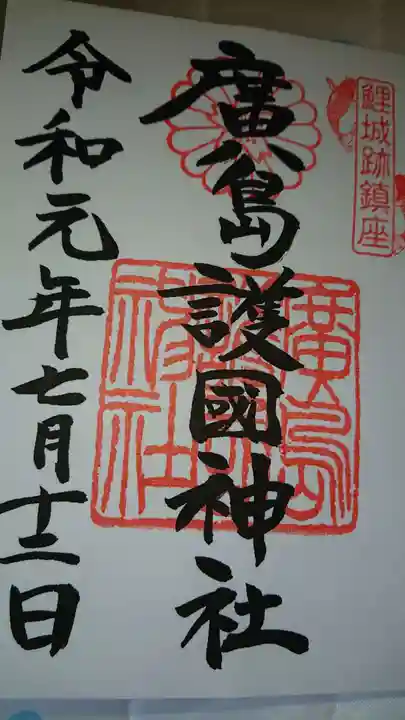 鯉城跡鎮座
廣島護國神社
廣島護國神社
令和元年七月十三日